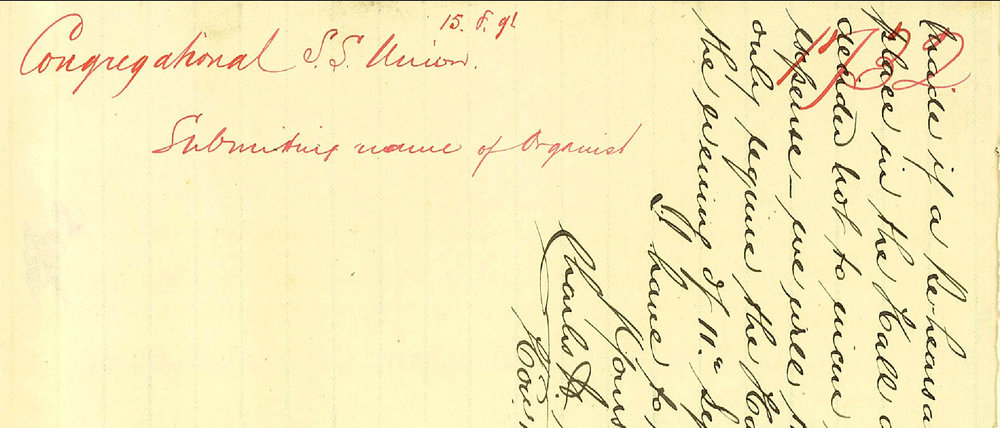 15. F. 91
Congregational S.S. Union.
Submitting name of Organist
1732
made if a Re-hearsa
place in the Hall
decided not to incur
expense – we will
only require the Ha
the evening of 11th Sep
I have to
Yours
Charles H.